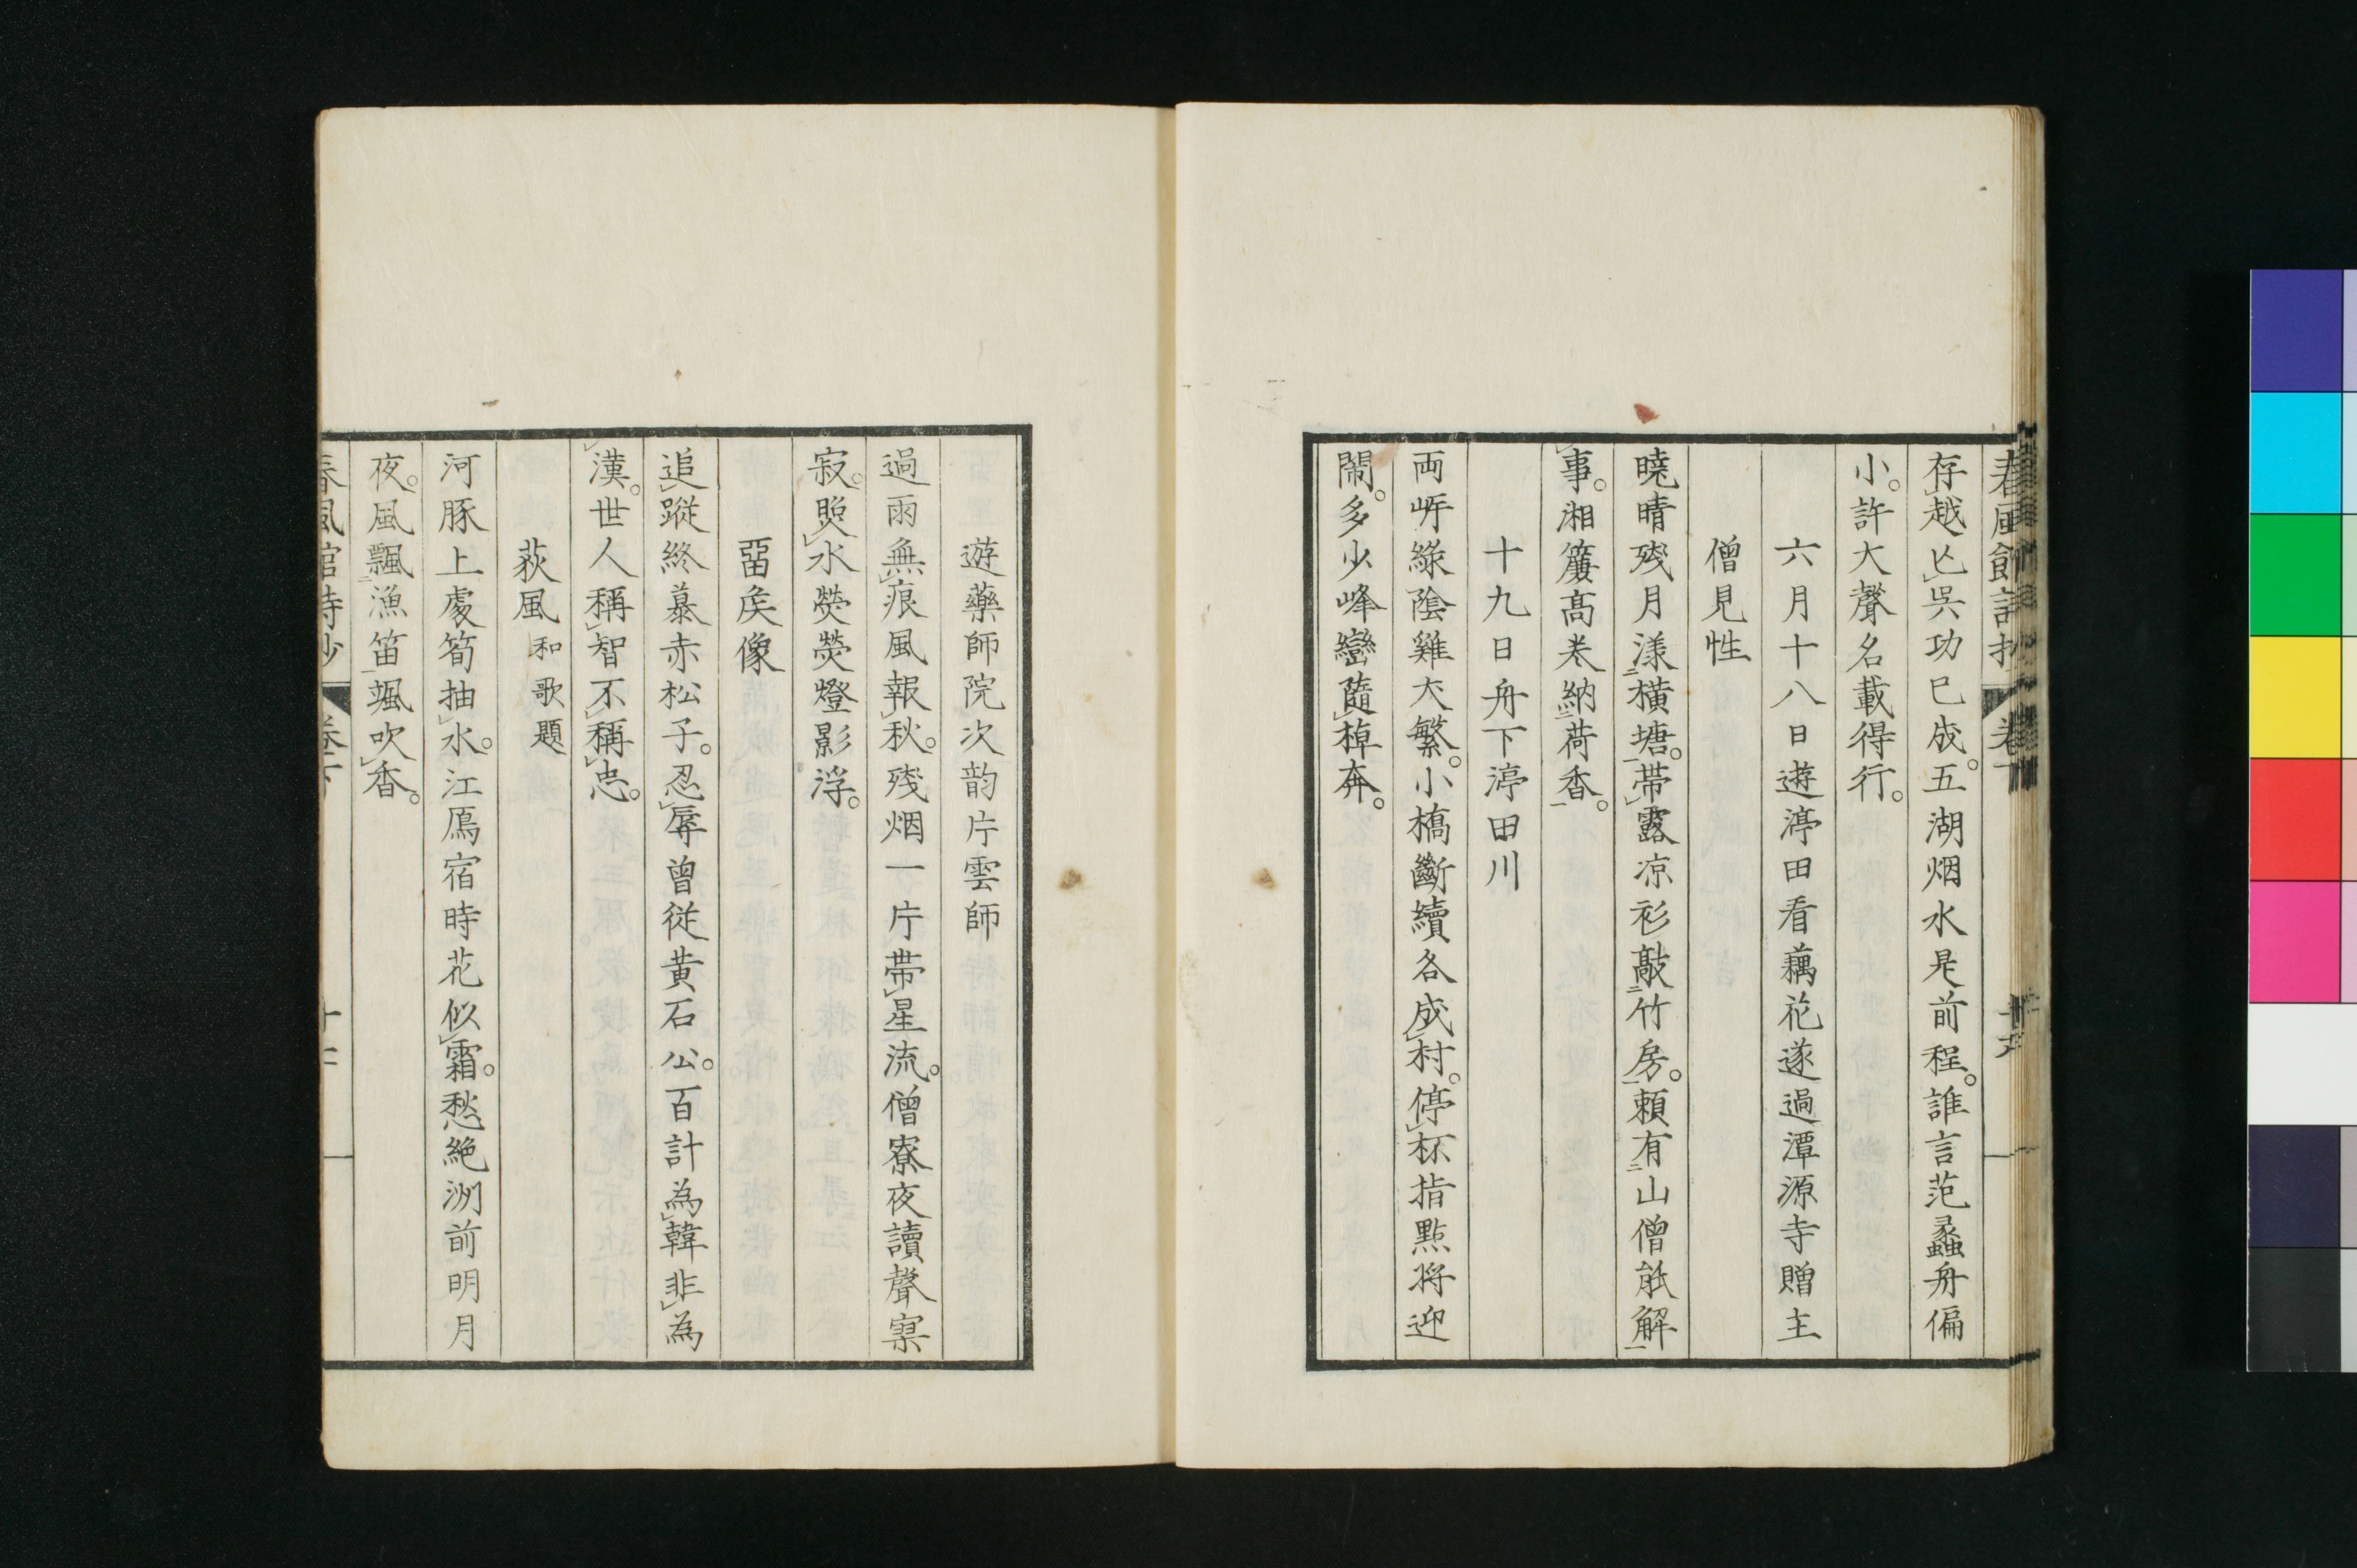 存越亾吳功已成。五湖烟水是前程。誰言范蠡舟偏
小。許大聲名載得行。
六月十八日遊渟田看藕花遂過潭源寺贈主
僧見性
曉晴殘月漾二橫塘一。帶露凉衫敲二竹房一。賴有二山僧能解一
事。湘簾高卷納二荷香一。
十九日舟下渟田川
両岍綠陰雞犬繁。小橋斷續各成村。停杯指點將迎
閙。多少峰巒隨棹奔。
遊藥師院次韵片雲師
過雨無痕風報秋。殘烟一片帶星流。僧寮夜讀聲寀
寂。照水熒熒燈影浮。
畱矦像
追蹤終慕赤松子。忍辱曾從黃石公。百計為韓非為
漢。世人稱智不稱忠。
荻風 和歌題
河豚上處筍抽水。江鴈宿時花似霜。愁絶洲前明月
夜。風飄二漁笛一颯吹香。
春風館詩抄 卷下